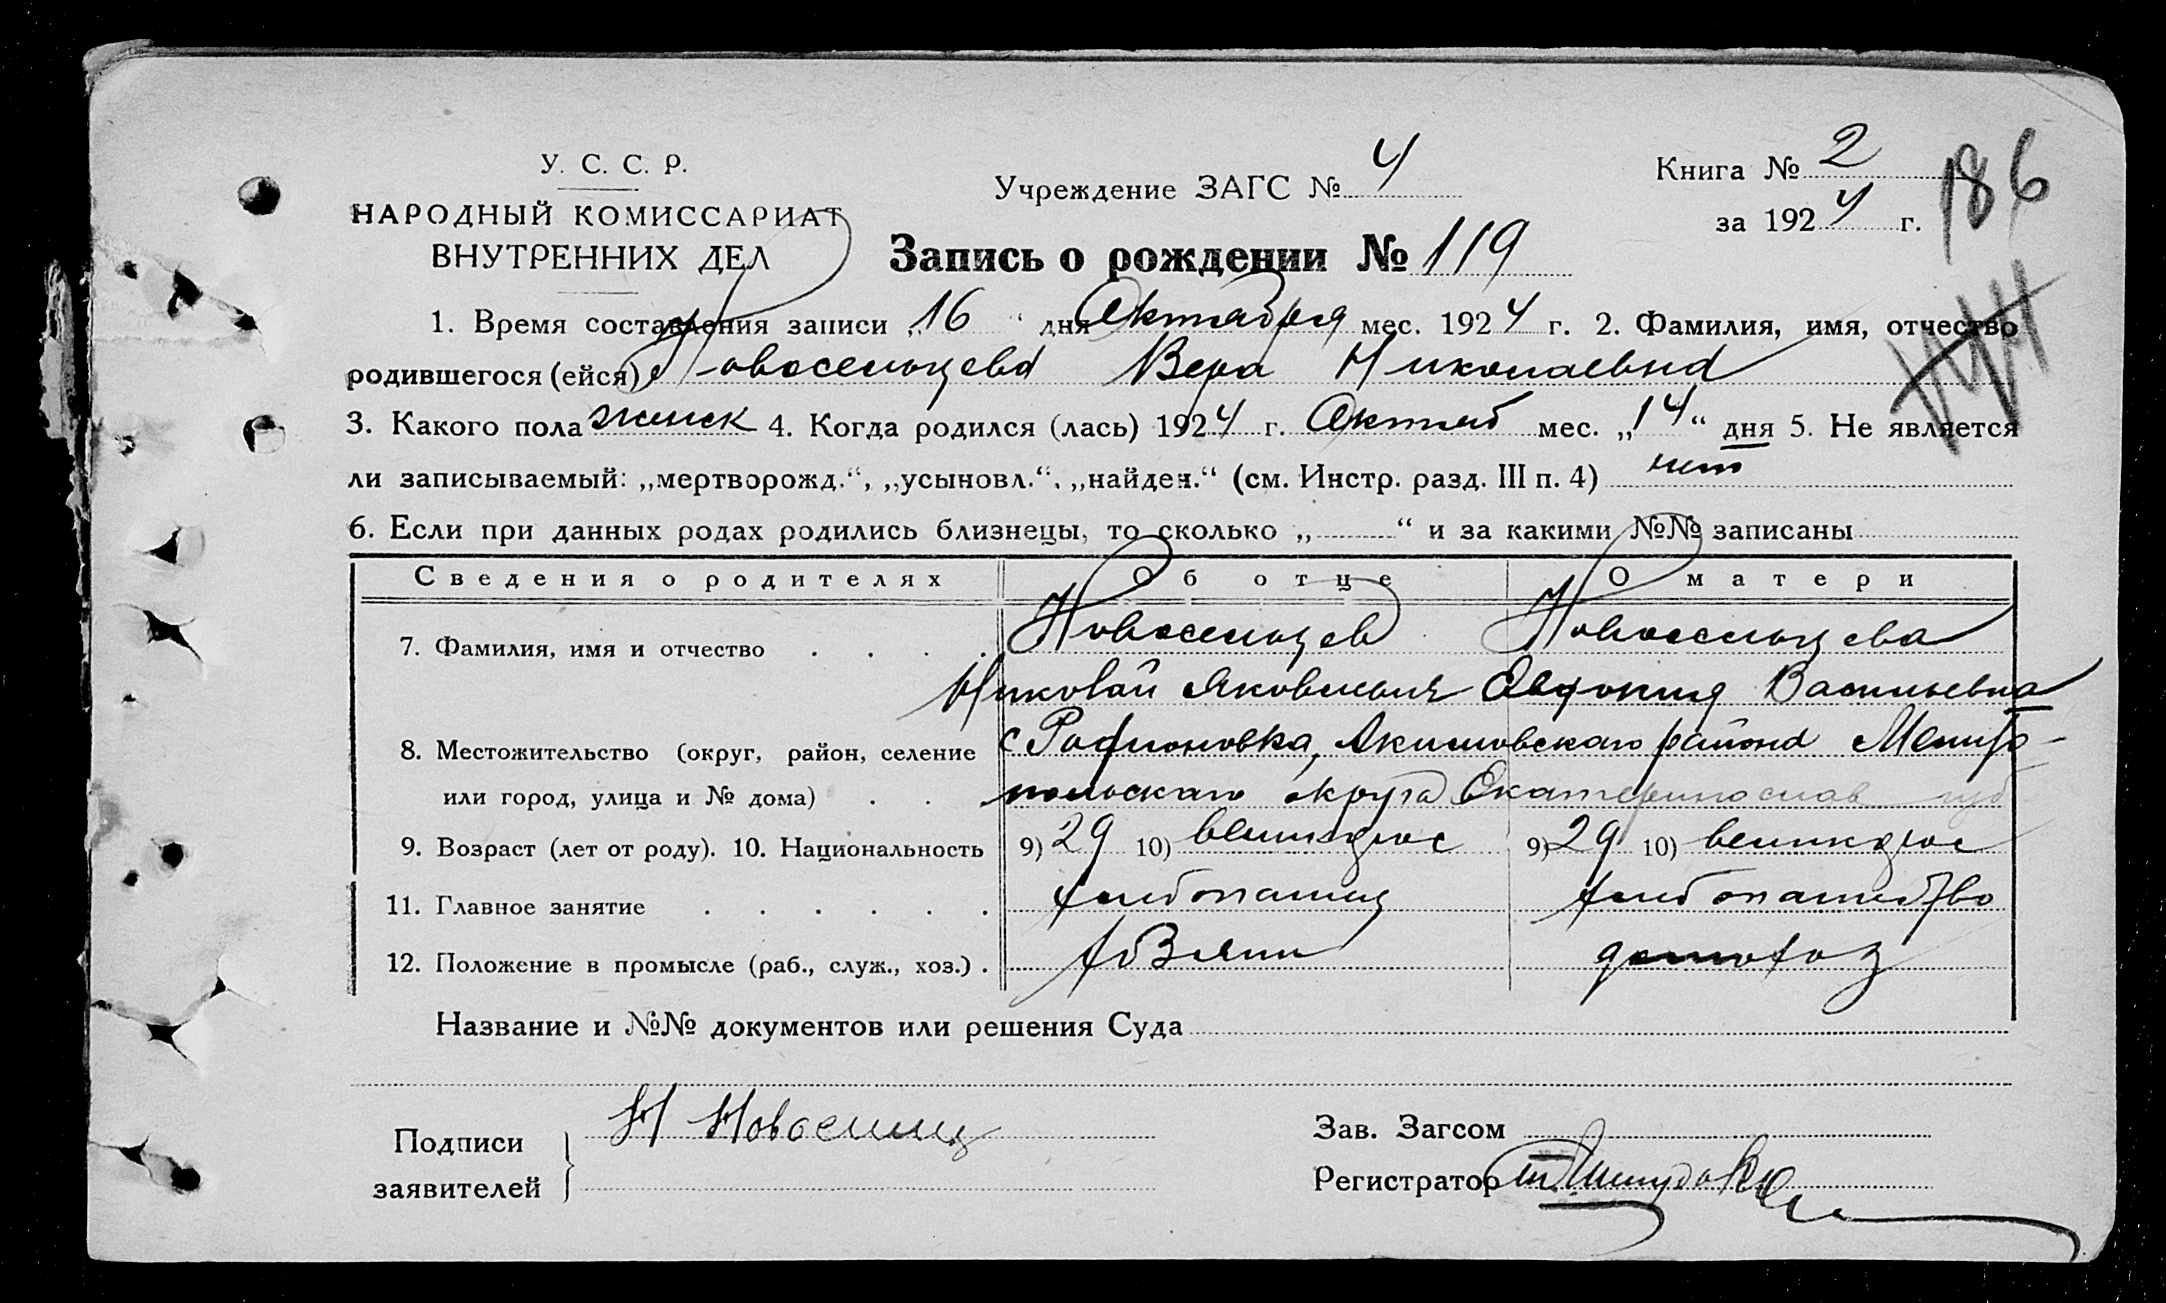 У. С. С. Р.
НАРОДНЫЙ КОМИССАРИАТ
ВНУТРЕННИХ ДЕЛ
Учреждение ЗАГС № 4
Книга № 2
за 1924 г.
186
Запись о рождении № 119
1. Время составления записи „16“ дня Октября мес. 1924 г. 2. Фамилия, имя, отчество
родившегося (ейся) Новосельцева Вера Николаевна
3. Какого пола женск 4. Когда родился (лась) 1924 г. Октяб мес. „14“ дня 5. Не является
ли записываемый: „мертворожд.“, „усыновл.“, „найден.“ (см. Инстр. разд. III п. 4) нет
6. Если при данных родах родились близнецы, то сколько „ “ и за какими №№ записаны
Сведения о родителях Об отце О матери
7. Фамилия, имя и отчество Новосельцев Новосельцева
Николай Яковлевич Евдокия Васильевна
8. Местожительство (округ, район, селение с Родионовка, Акимовскаго района Мелито-
или город, улица и № дома) польскаго округа Екатеринослав губ
9. Возраст (лет от роду). 10. Национальность 9) 29 10) великорос 9) 29 10) великорос
11. Главное занятие хлебопашец хлебопашество
12. Положение в промысле (раб., служ., хоз.) хозяин домохоз
Название и №№ документов или решения Суда
Подписи
заявителей
Н Новоселец
Зав. Загсом
Регистратор